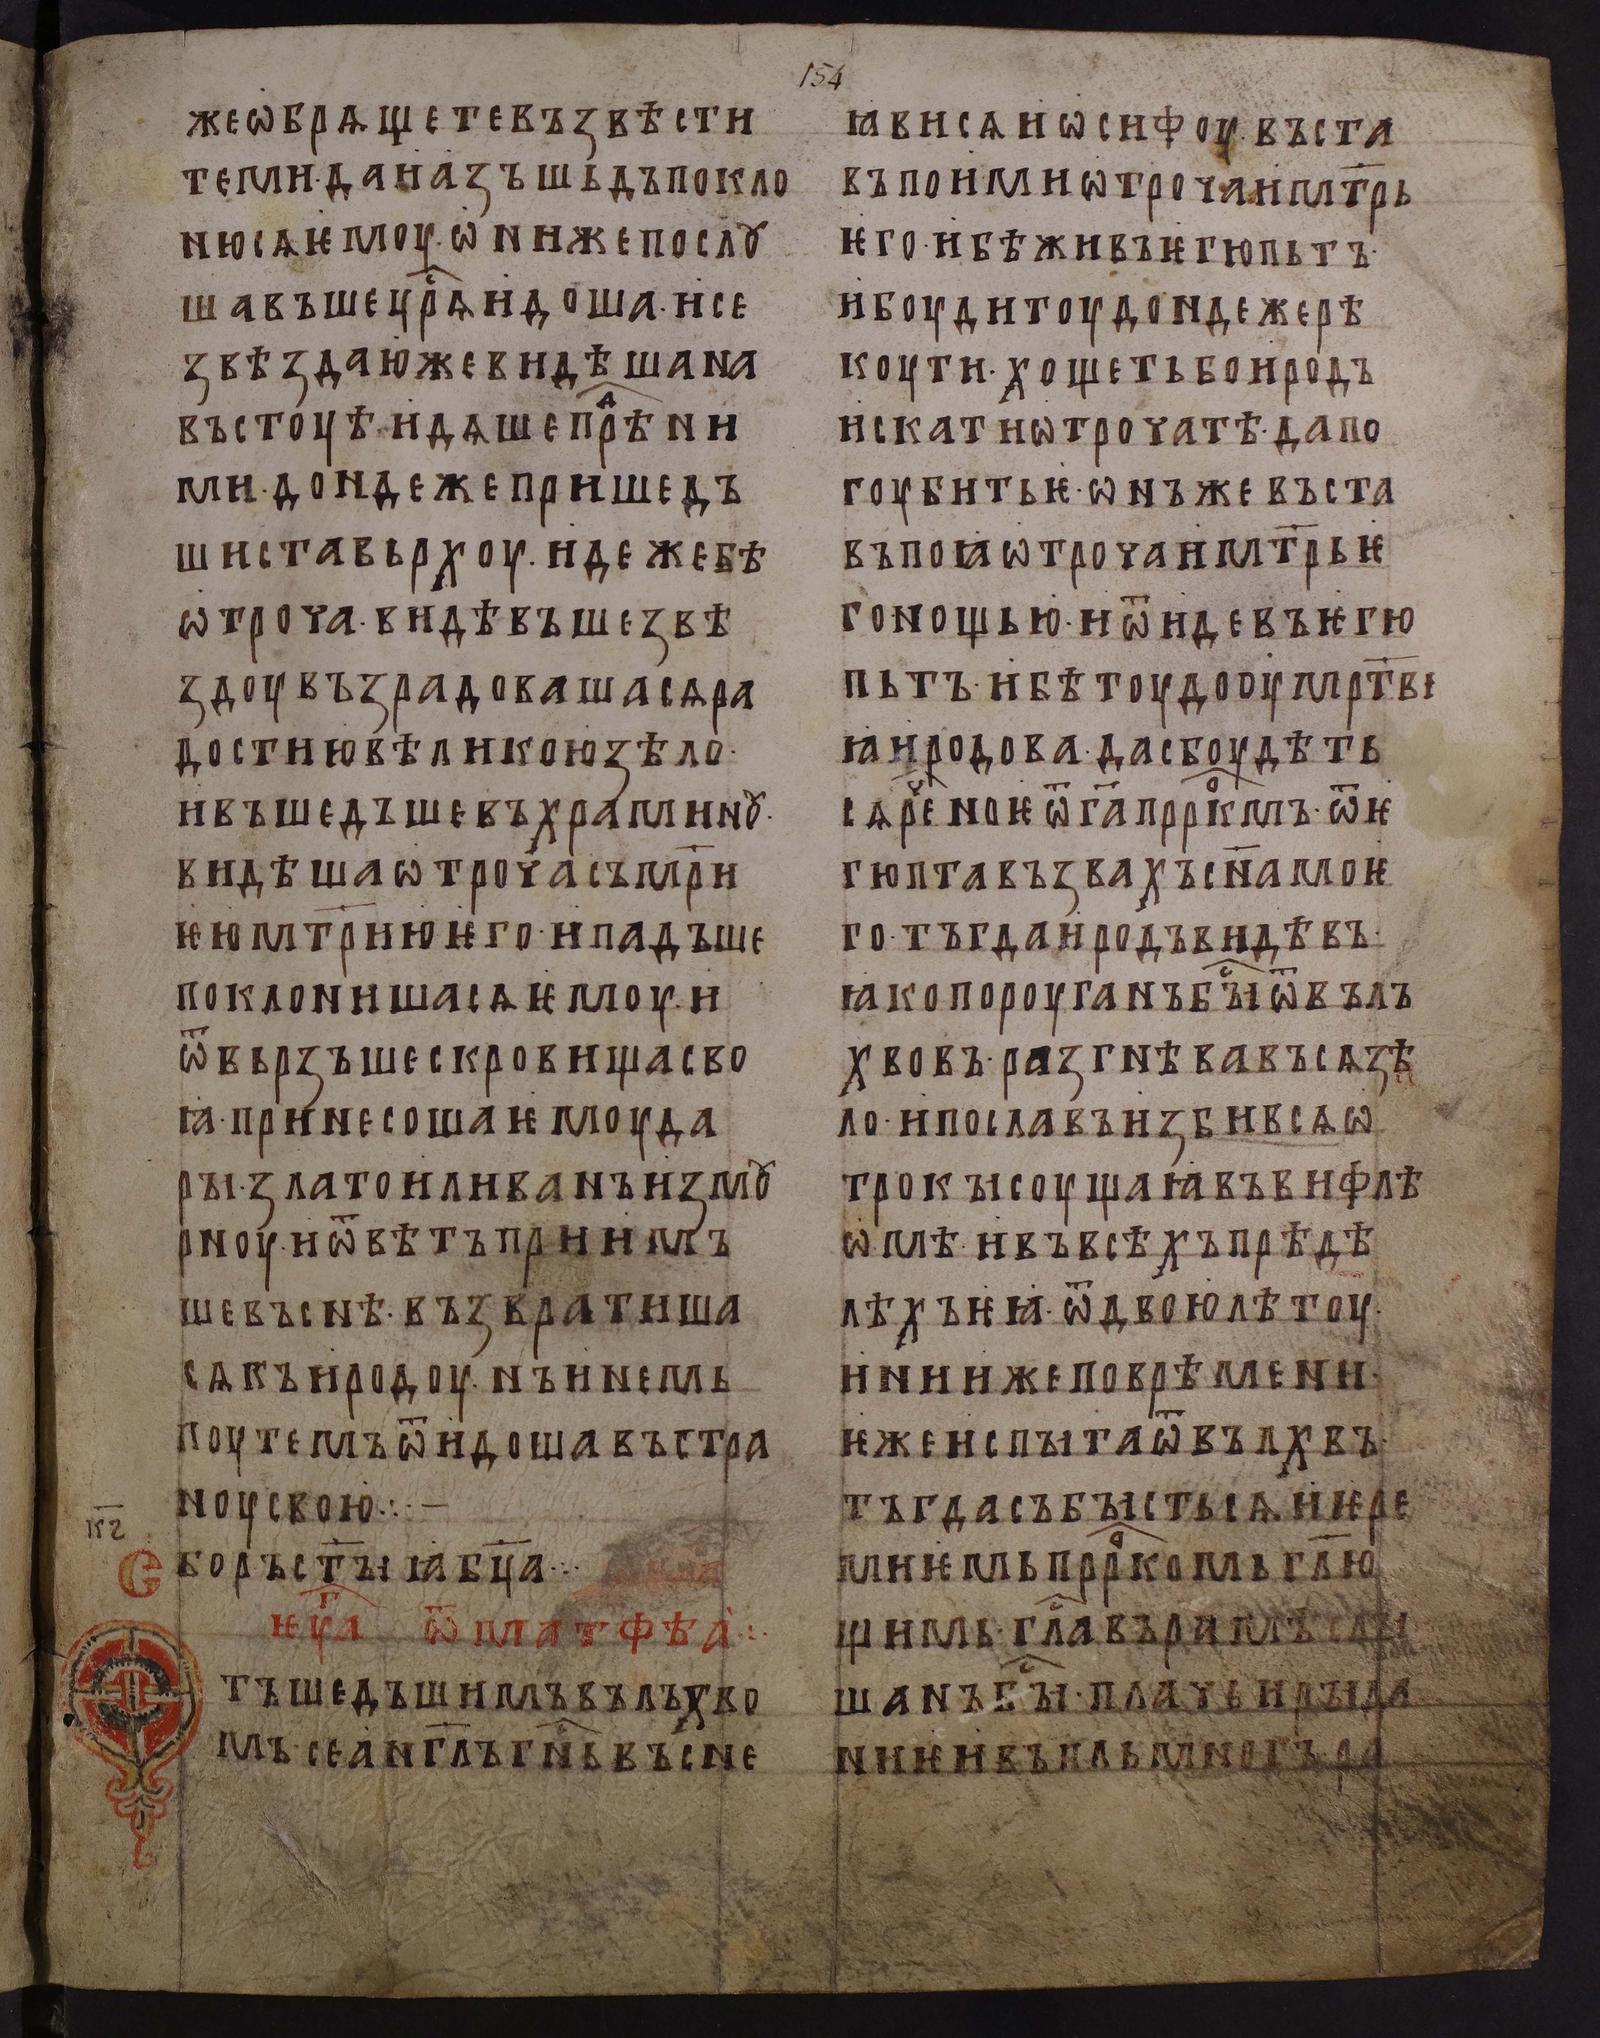 154
жеѡбрѧщетевъзвѣсти
теми·даиазъшьдъпокло
нюсѧѥмоу·ѡнижепослꙋ
шавъшецрⷭ҇ѧидоша·исе
звѣздаюжевидѣшана
въстоцѣ·идѧшепрⷣѣни
ми·дондежепришедъ
шиставьрхоу·идежебѣ
ѡтроча·видѣвъшезвѣ
здоувъзрадовашасѧра
достиювѣликоюзѣло·
ивъшедъшевъхраминꙋ·
видѣшаѡтрочасъмр҃и
ѥюмт҃риюѥго·ипадъше
поклонишасѧѥмоу·и
ѿвьрзъшескровищасво
ꙗ·принесошаѥмоуда
ры·златоиливанъизмꙋ
рноу·иѿвѣтъприимъ
шевъснѣ·възвратиша
сѧкъиродоу·нъинемь
поутемъѿидошавъстра
ноусвою⁘—
к҃г
Сборъст҃ыꙗбц҃а⁘
ѥуⷢ҇а ѿматфѣа⁘
Ѡтъшедъшимъвълъхво
мъ·сеанг҃лъгнⷭ҇ьвъсне
ꙗвисѧиѡсифоу·въста
въпоимиѡтрочаимт҃рь
ѥго·ибѣживъѥгюпьтъ·
ибоудитоудондежерѣ
коути·хощетьбоиродъ
искатиѡтрочатѣ·дапо
гоубитьѥ·ѡнъжевъста
въпоꙗѡтрочаимт҃рьѥ
гонощью·иѿидевъѥгю
пьтъ·ибѣтоудооумрт҃вї
ꙗиродова·дасбоудѣть
сѧрⷱ҇еноѥѿг҃апррⷪ҇кмъ·ѿѥ
гюптавъзвахъсн҃амоѥ
го·тъгдаиродъвидѣвъ·
ꙗкопороуганъбꙑⷭ҇ѿвълъ
хвовъ·разгнѣвавъсѧзѣ
ло·ипославъизбивсѧѡ
трокꙑсоущаꙗвъвифлѣ
ѡмѣ·ивъвсѣхъпрѣдѣ
лѣхъѥꙗ·ѿдвоюлѣтоу·
инижеповрѣмени·
ѥжеиспꙑтаѿвълхвъ·
тъгдасъбꙑстьсѧиѥре
миѥмьпррⷪ҇комьгл҃ю
щимь·глⷭ҇авърамѣслꙑ
шанъбꙑⷭ҇·плачьирꙑда
ниѥивъпльмногъра